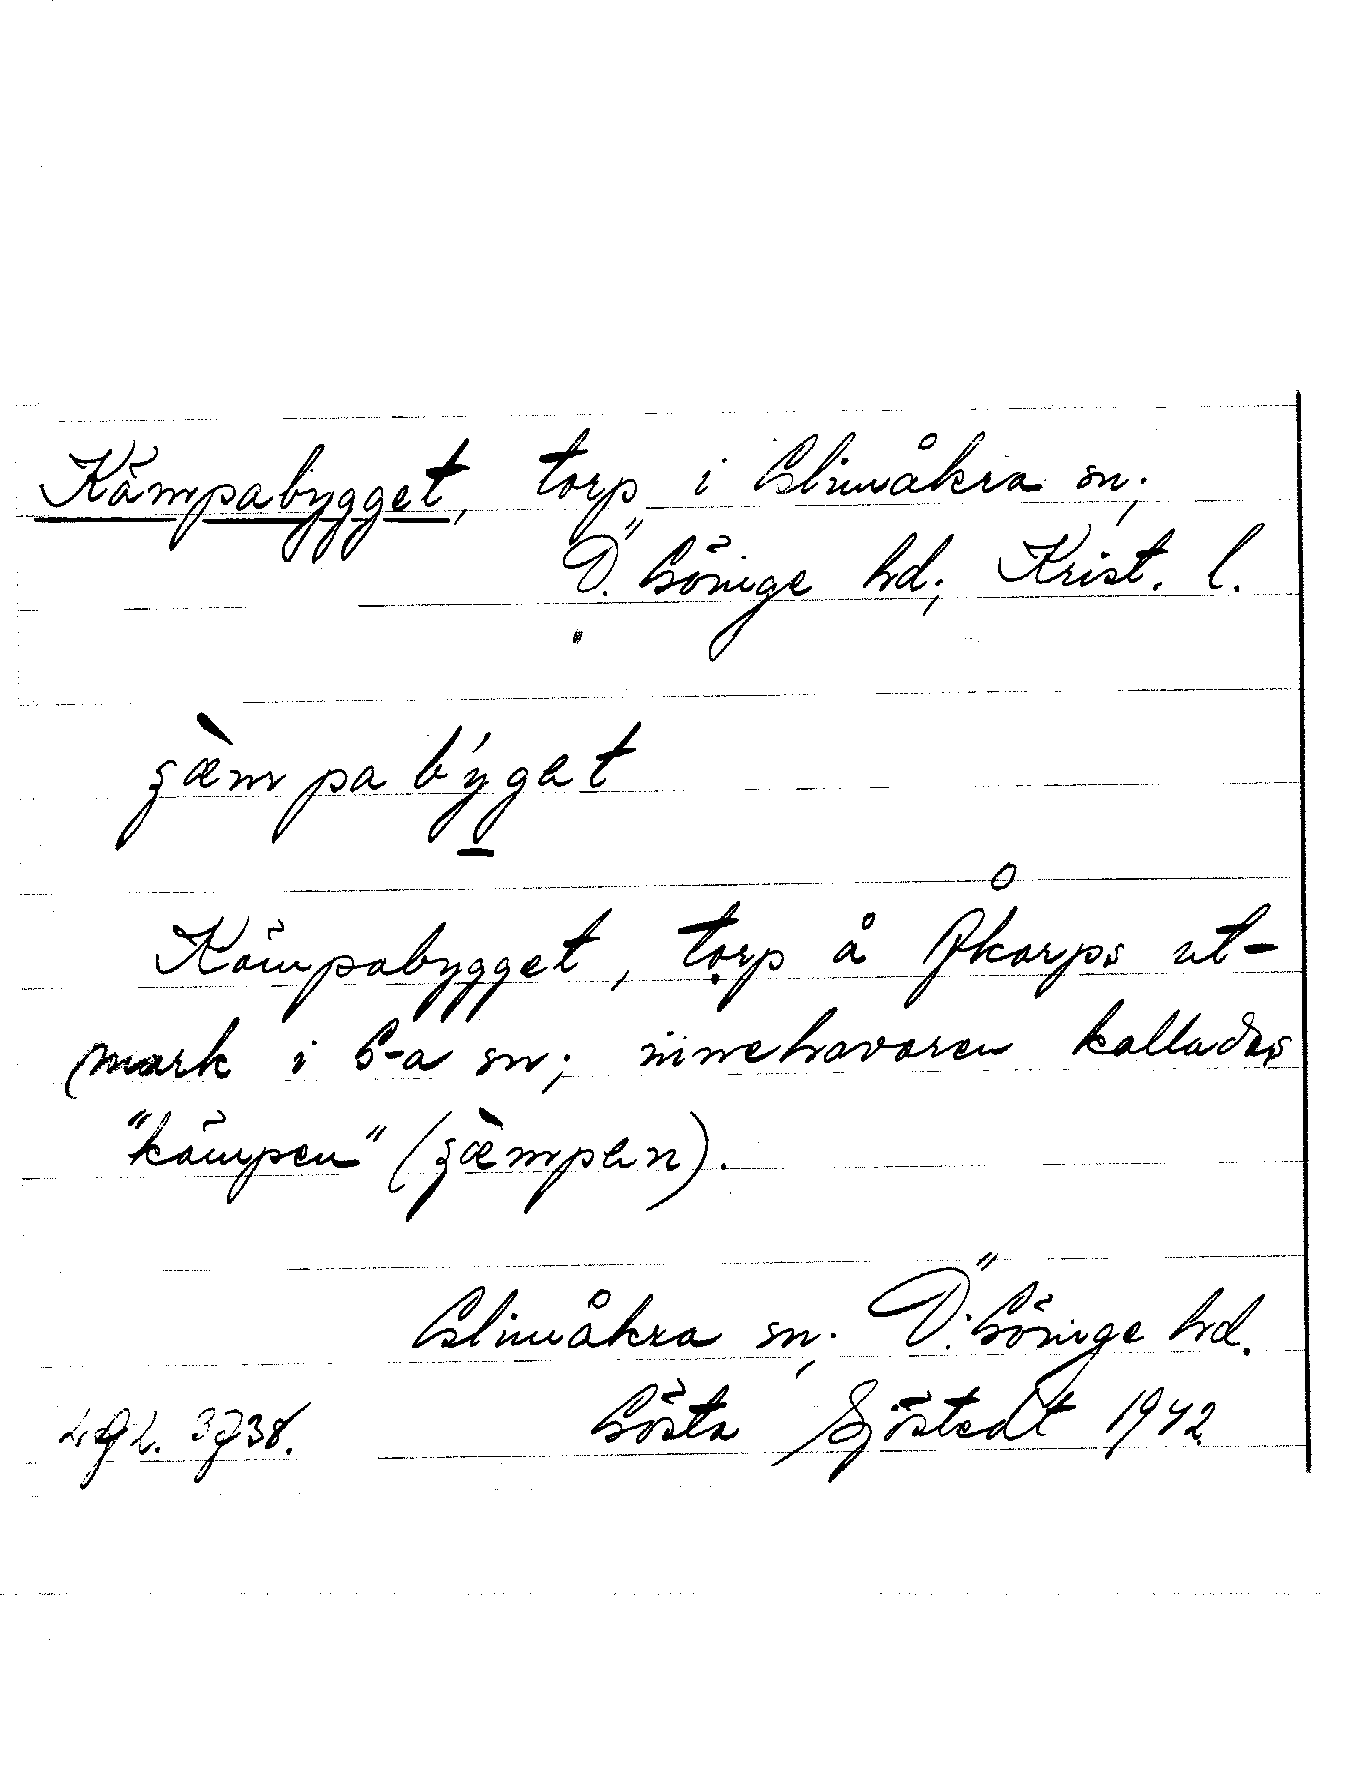 Kämpabygget, torp i Glimåkra sn;
Ö. Göinge hd; Krist. l.
ʒæ̀mpabýget
Kämpabygget, torp å Åkarps ut-
mark i G-a sn; innehavaren kallades
"kämpen" (ʒæ̀mpen).
Glimåkra sn; Ö. Göinge hd.
Gösta Sjöstedt 1942
3738.